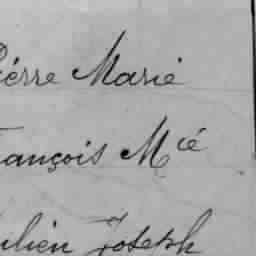 Piérre Marie
François Mcié
ulien Joseph